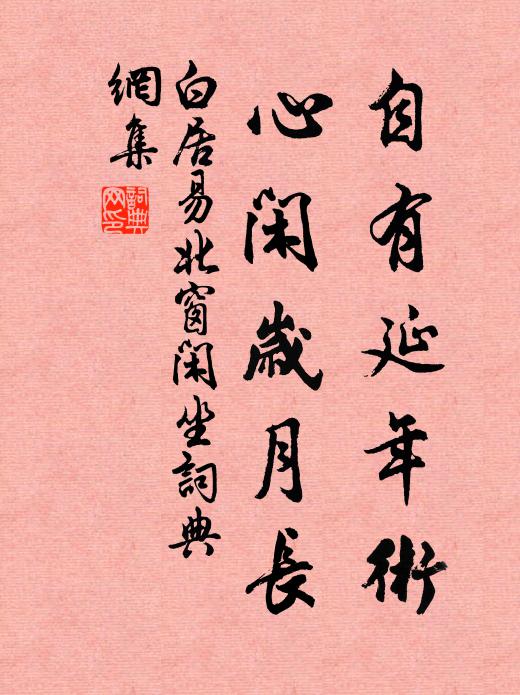 自有延年術
心閑歲月長
白居易北窗閑坐詞典
網集
詞典
网印